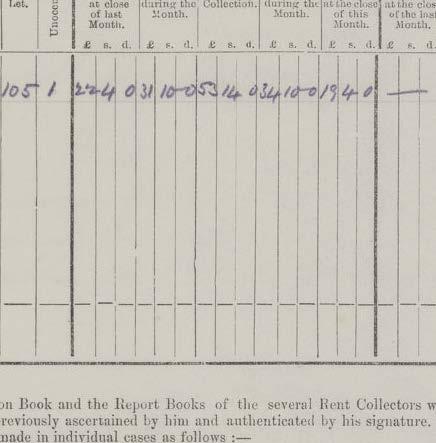 Let. Unoccu at close during the Collection. during the at the close at the close
of last Month. Month. of this of the last
Month. Month. Month.
£ s. d. £ s. d. £ s. d. £ s. d. £ s. d. £ s. d.
105 1 22 4 0 31 10 0 53 14 0 34 10 0 19 4 0 —
on Book and the Report Books of the several Rent Collectors w
reviously ascertained by him and authenticated by his signature.
made in individual cases as follows :—